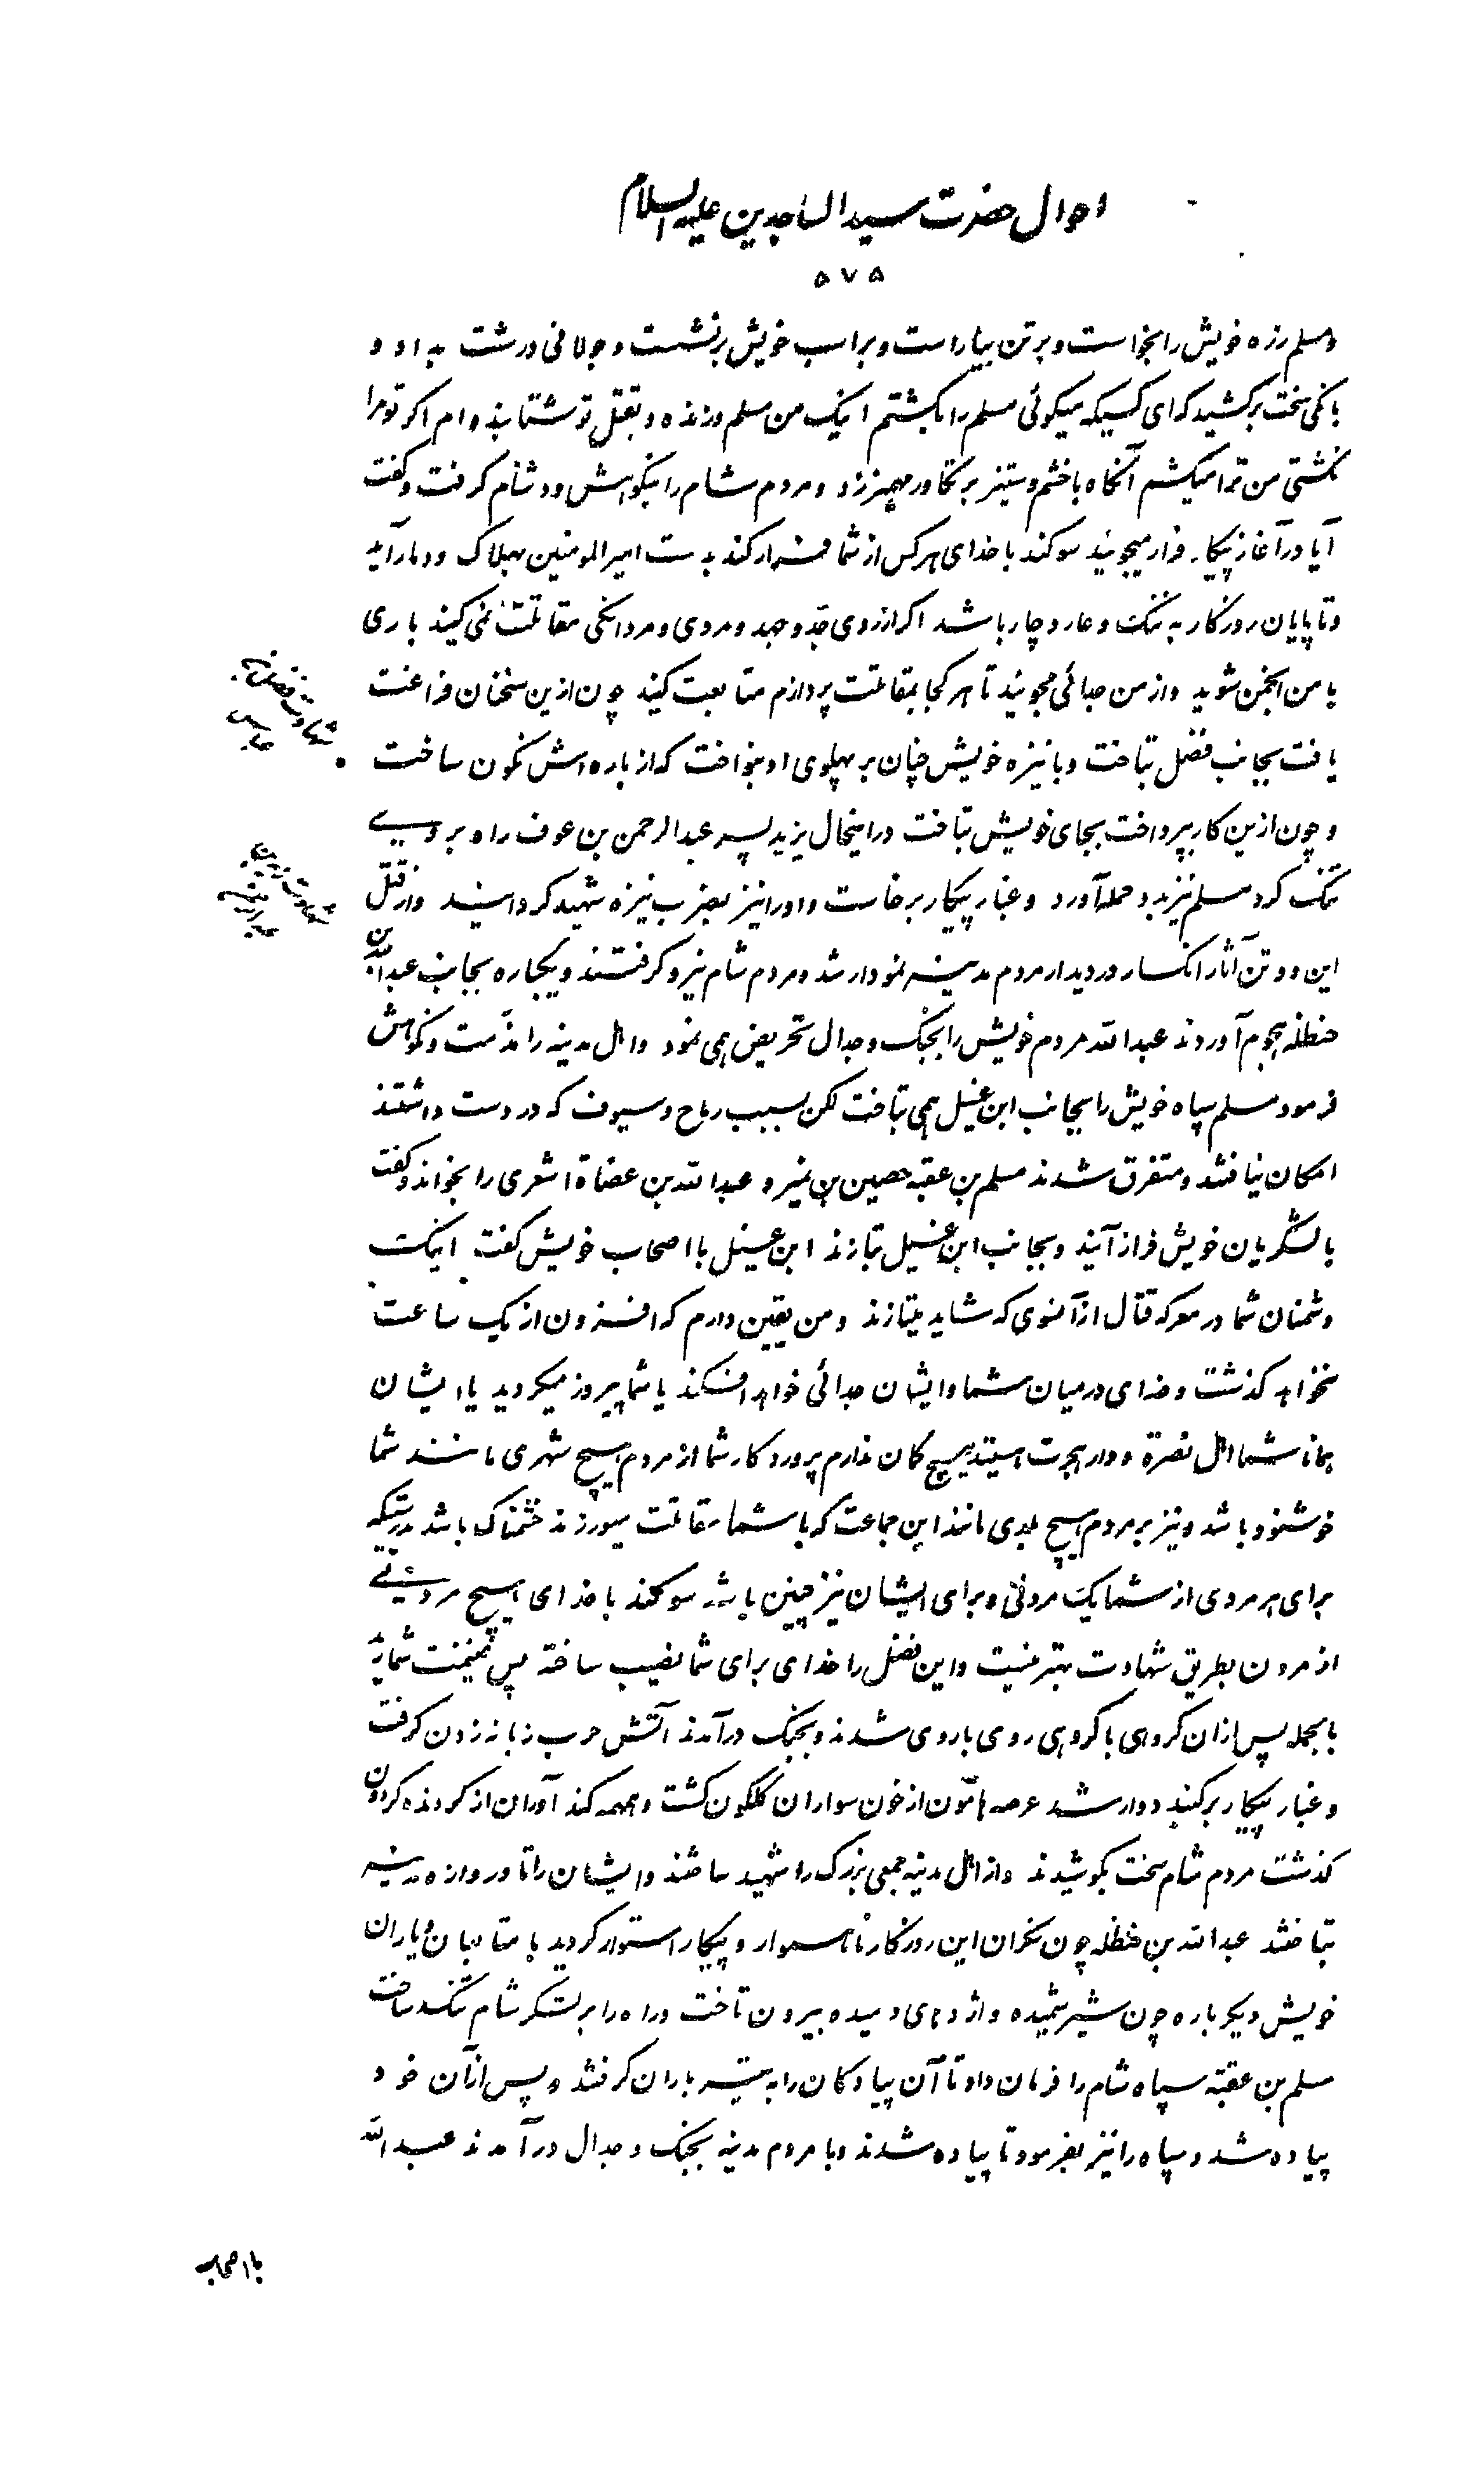 احوال حضرت سیدالساجدین علیه السلام
۵۷۵
ومسلم زره خویش را بخواست و بر تن بیاراست و بر اسب خویش برنشست و جولانی درشت بداد و
بانکی سخت برکشید که ای کسیکه میکوئی مسلم را بکشتم اینک من مسلم و زنده و بقتل تو شتابنده‌ام اکر تو مرا
نکشتی من ترا میکشم آنکاه با خشم و ستیز بر تکاور مهمیز زد و مردم شام را بنکوهش و دشنام کرفت و کفت
آیا در آغاز پیکار فرار میجوئید سوکند با خدای هر کس از شما فرار کند بدست امیرالمومنین بهلاک و دمار آید
و تا پایان روزکار به ننک و عار دچار باشد اکر از روی جدّ و جهد و مردی و مردانکی مقاتلت نمی کنید باری
با من انجمن شوید و از من جدائی مجوئید تا هر کجا بمقاتلت پردازم متابعت کنید چون ازین سخنان فراغت
یافت بجانب فضل بتاخت و با نیزه خویش چنان بر پهلوی او بنواخت که از باره‌اش نکون ساخت
شهادت فضل بن عباس
و چون ازین کار بپرداخت بجای خویش بتاخت در اینحال یزید پسر عبدالرحمن بن عوف راه بر وی
تنک کرد مسلم نیز بدو حمله آورد و غبار پیکار برخاست و او را نیز بضرب نیزه شهید کردانید و از قتل
این دو تن آثار انکسار در دیدار مردم مدینه نمودار شد و مردم شام نیرو کرفتند و یکباره بجانب عبدالله بن
حنظله هجوم آوردند عبدالله مردم خویش را بجنک و جدال تحریض همی نمود و اهل مدینه را مذمت و نکوهش
فرمود مسلم سپاه خویش را بجانب ابن غسیل همی بتاخت لکن بسبب رماح و سیوف که در دست داشتند
امکان نیافتند و متفرق شدند مسلم بن عقبه حصین بن نمیر و عبدالله بن عضاة اشعری را بخواند و کفت
با لشکریان خویش فراز آیند و بجانب ابن غسیل بتازند ابن غسیل با اصحاب خویش کفت اینک
دشمنان شما در معرکه قتال از آنسوی که شاید بتازند و من یقین دارم که افزون از یک ساعت
نخواهد کذشت و خدای در میان شما و ایشان جدائی خواهد افکند یا شما پیروز میکردید یا ایشان
همانا شما اهل نصرة و دار هجرت هستید هیچ کمان ندارم پروردکار شما از مردم هیچ شهری مانند شما
خوشنود باشد و نیز بر مردم هیچ بلدی مانند این جماعت که با شما مقاتلت میورزند خشمناک باشد بدرستیکه
برای هر مردی از شما یک مردنی و برای ایشان نیز چنین باشد سوکند با خدای هیچ مردنی
از مردن بطریق شهادت بهتر نیست و این فضل را خدای برای شما نصیب ساخته پس غنیمت شمارید
بالجمله پس از ان کروهی با کروهی روی با روی شدند و بجنک درآمدند آتش حرب زبانه زدن کرفت
و غبار پیکار بر کنبد دوار شد عرصه هامون از خون سواران کلکون کشت و همهمه کندآوران از کردنده کردون
کذشت مردم شام سخت بکوشیدند و از اهل مدینه جمعی بزرک را شهید ساختند و ایشان را تا دروازه مدینه
بتاختند عبدالله بن حنظله چون نکران این روزکار ناهموار و پیکار استوار کردید با متابعان و یاران
خویش دیکرباره چون شیر شمیده و اژدهای دمیده بیرون تاخت و راه را بر لشکر شام تنک ساخت
مسلم بن عقبة سپاه شام را فرمان داد تا آن پیادکان را به تیر باران کرفتند و پس از آن خود
پیاده شد و سپاه را نیز بفرمود تا پیاده شدند و با مردم مدینه بجنک و جدال درآمدند عبدالله
با اصحاب